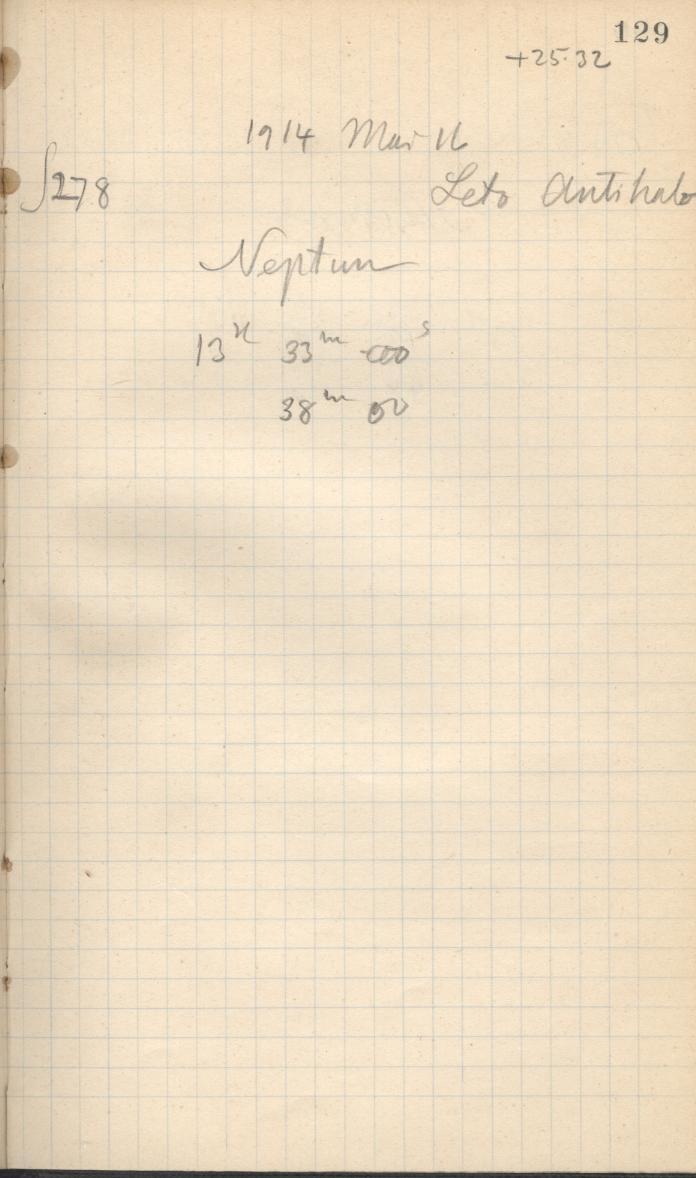 129
+25.32
1914 Mar 16
S278 Leto Antihalo
Neptun
13h 33m 00s
38m 00